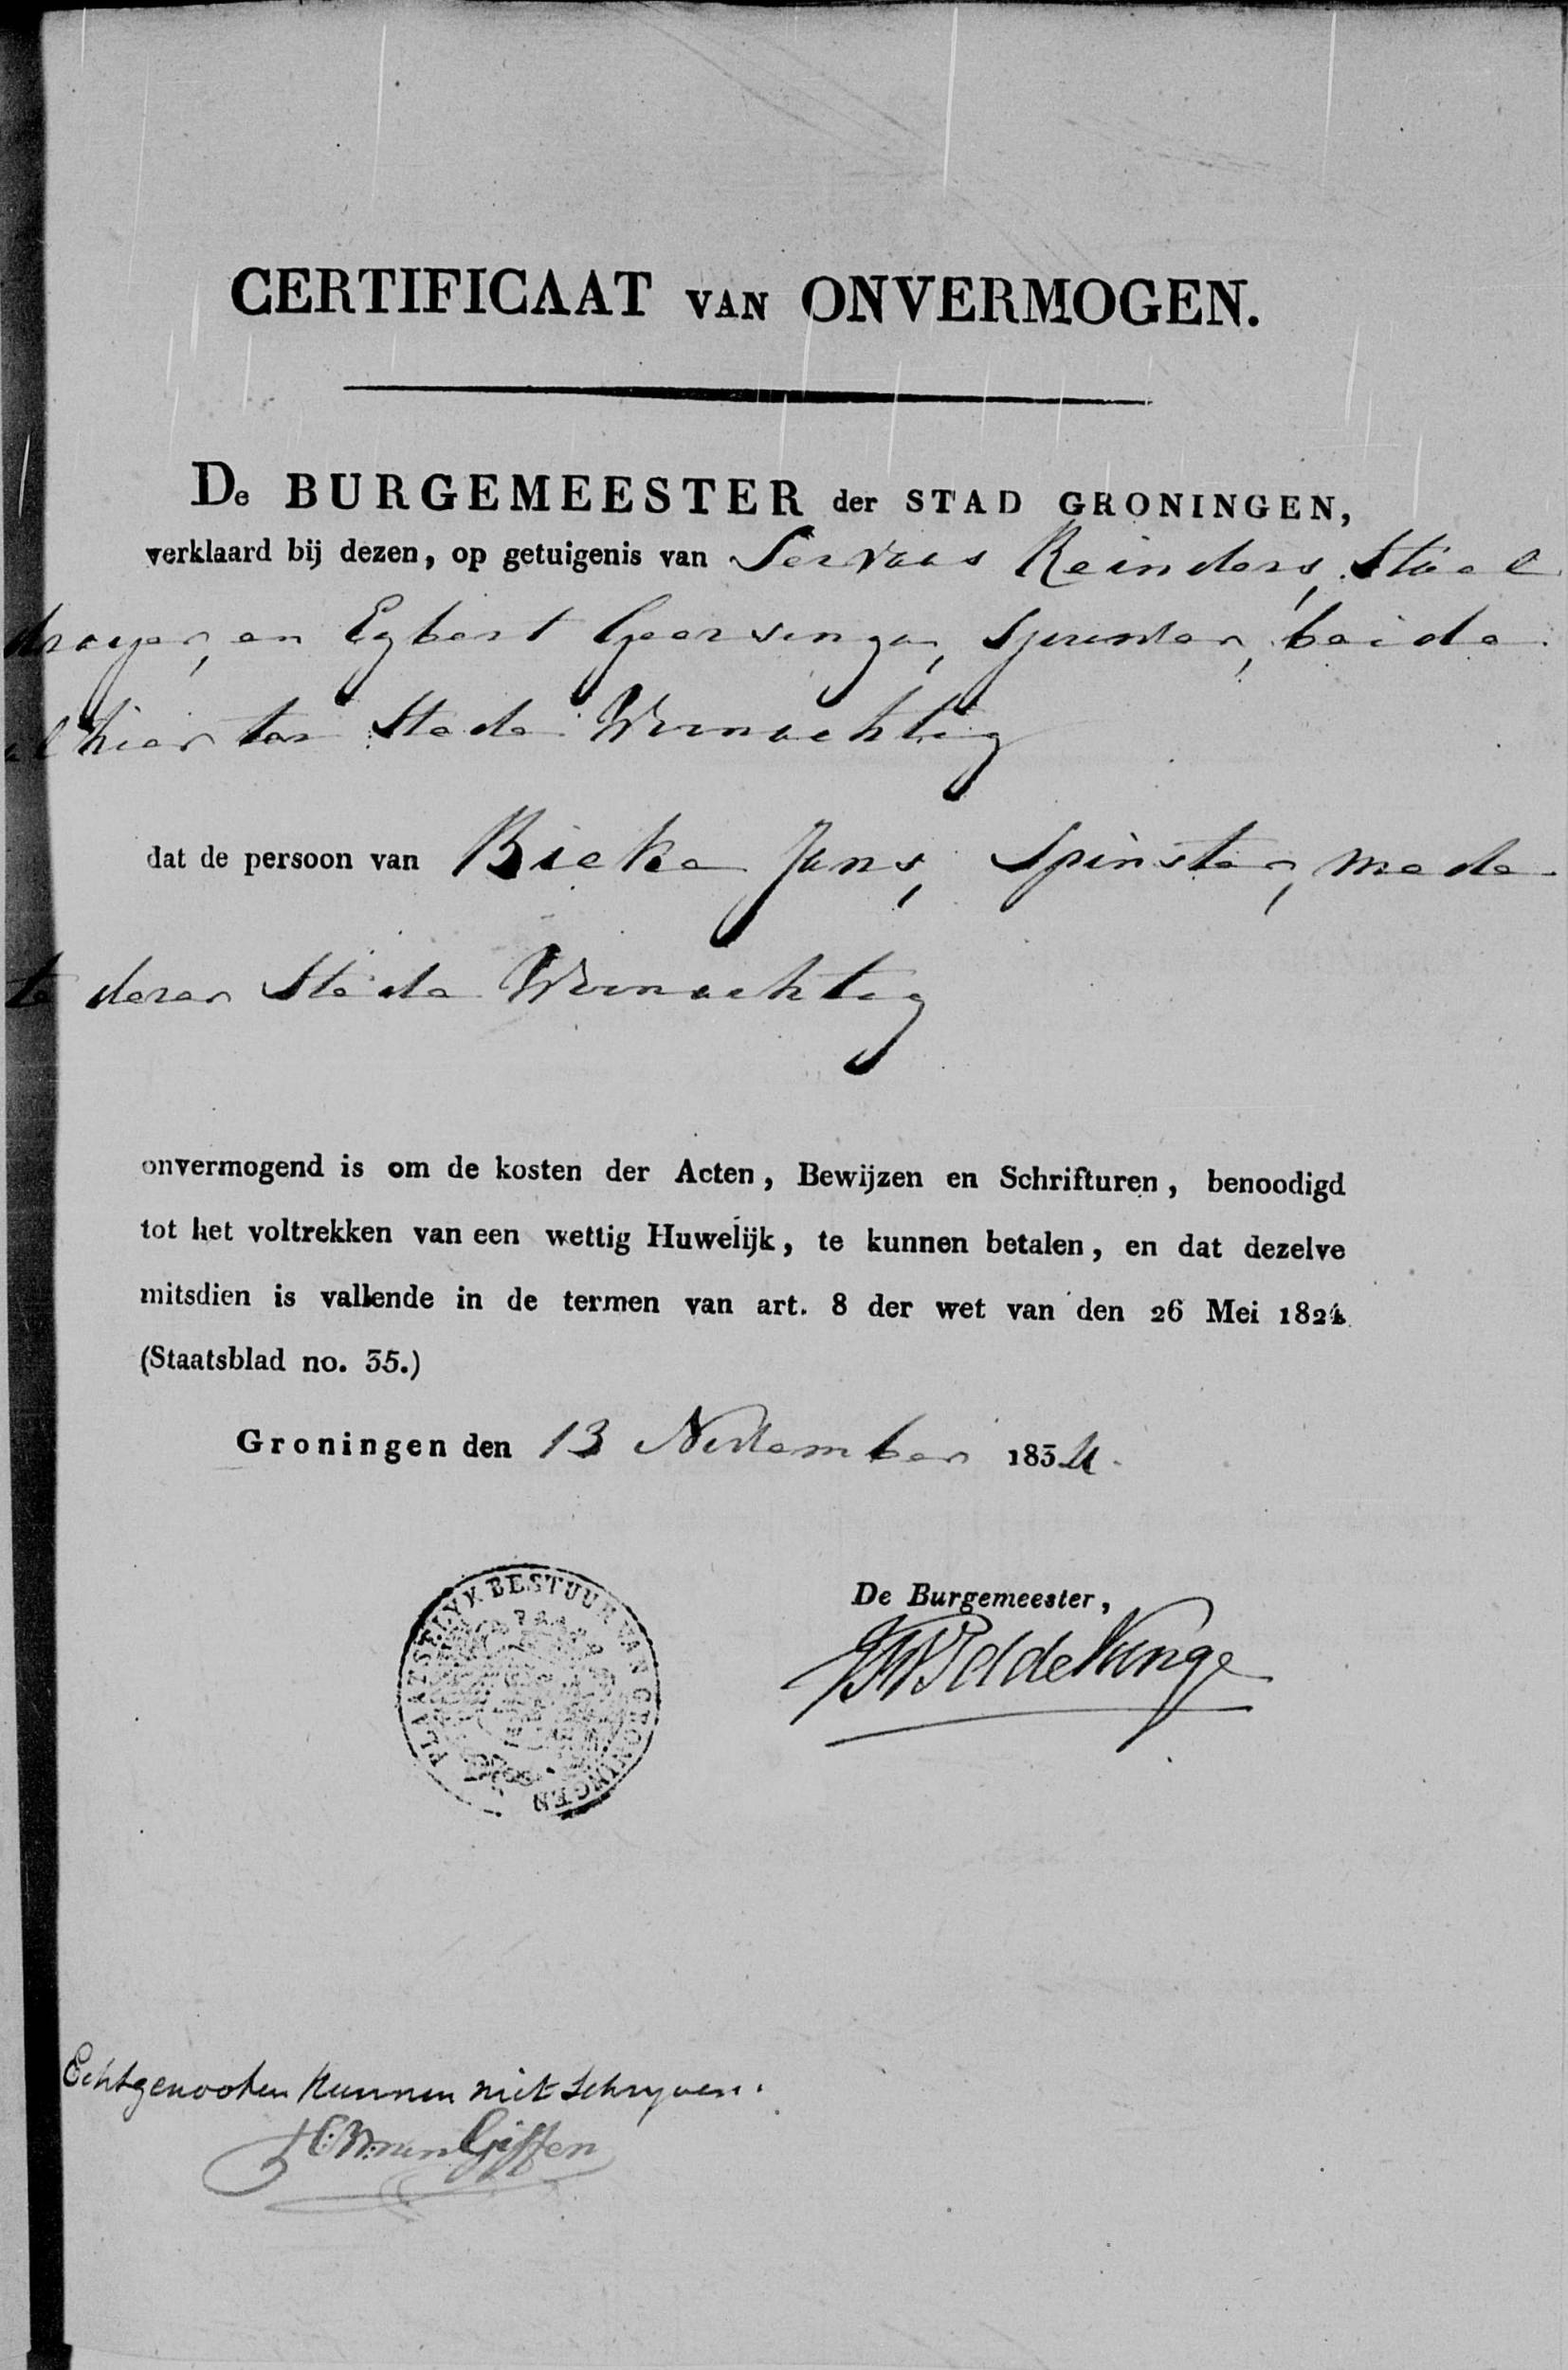 CERTIFICAAT VAN ONVERMOGEN.
De BURGEMEESTER der STAD GRONINGEN,
verklaard bij dezen, op getuigenis van Servaas Reinders, Stoel
drayer, en Egbert Geersinga, Spinster, beide
alhier ter Stede Woonachtig
dat de persoon van Bieke Jans, Spinster, mede
te dezer Stede Woonachtig
onvermogend is om de kosten der Acten, Bewijzen en Schrifturen, benoodigd
tot het voltrekken van een wettig Huwelijk, te kunnen betalen, en dat dezelve
mitsdien is vallende in de termen van art. 8 der wet van den 26 Mei 1824
(Staatsblad no. 35.)
Groningen den 13 November 1834.
PLAATSELYK BESTUUR VAN GRONINGEN
De Burgemeester,
Echtgenooten kunnen niet schryven.
van Giffen